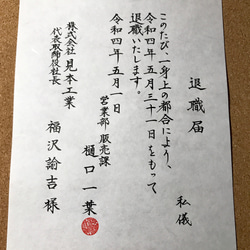 退職届
私儀
このたび、一身上の都合により、
令和四年五月三十一日をもって
退職いたします。
令和四年五月一日
営業部 販売課
樋口一葉
株式会社 見本工業
代表取締役社長
福沢諭吉 様